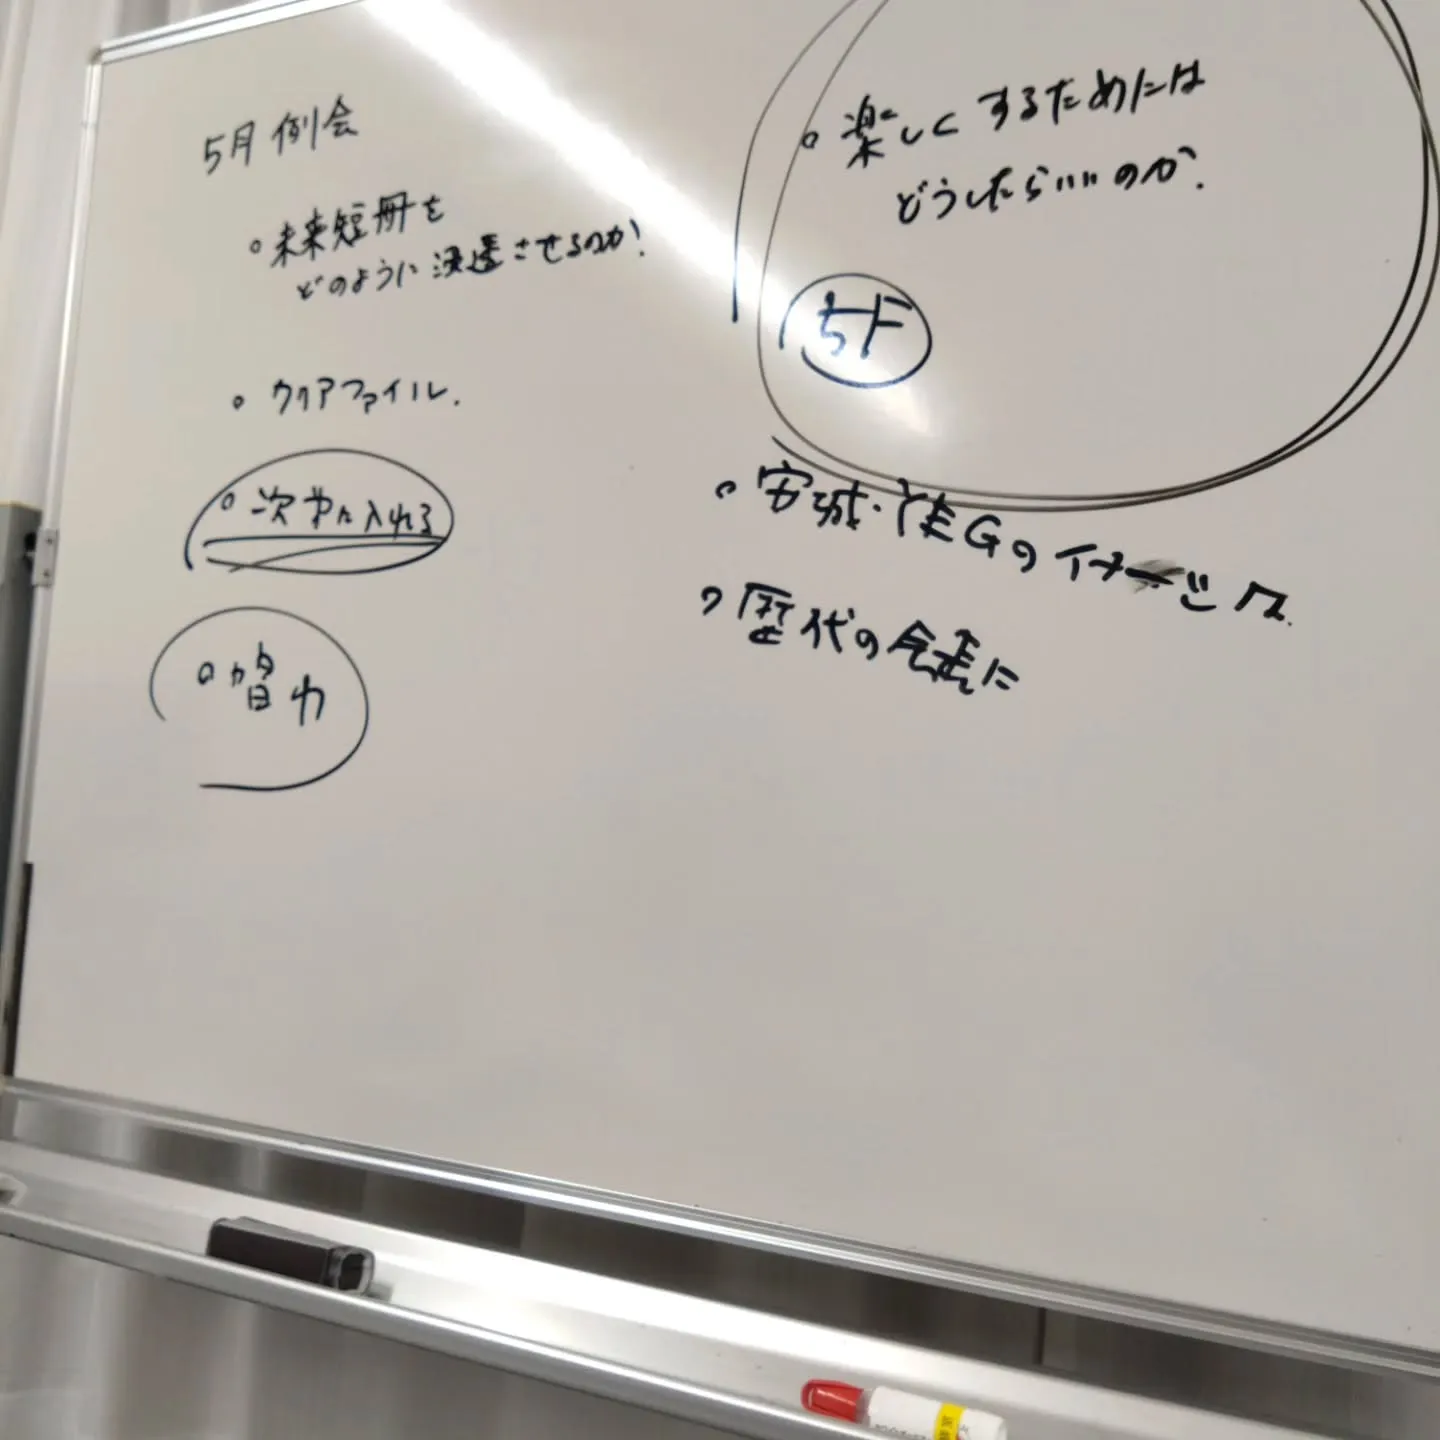 5月例会
○ 未来短冊を
どのように浸透させるのか?
○ クリアファイル.
○ 次年に入れる
○ 楽しくするためには
どうしたらいいのか.
5F
○ 安城・Gのイメージ
○ 歴代の会長に